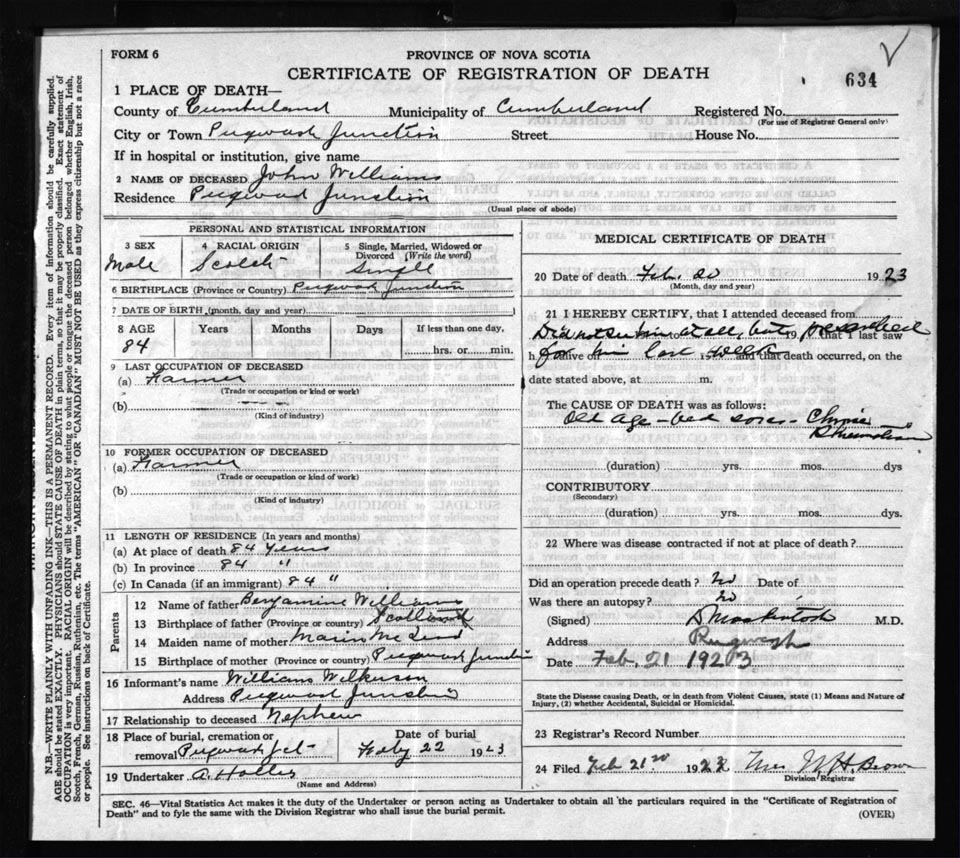 FORM 6
PROVINCE OF NOVA SCOTIA
CERTIFICATE OF REGISTRATION OF DEATH
634
1 PLACE OF DEATH—
County of Cumberland Municipality of Cumberland Registered No.
(For use of Registrar General only)
City or Town Pugwash Junction Street House No.
If in hospital or institution, give name
2 NAME OF DECEASED John Williams
Residence Pugwash Junction
(Usual place of abode)
PERSONAL AND STATISTICAL INFORMATION
3 SEX 4 RACIAL ORIGIN 5 Single, Married, Widowed or Divorced (Write the word)
Male Scotch Single
6 BIRTHPLACE (Province or Country) Pugwash Junction
7 DATE OF BIRTH (month, day and year)
8 AGE Years Months Days If less than one day,
84 hrs. or min.
9 LAST OCCUPATION OF DECEASED
(a) Farmer
(Trade or occupation or kind or work)
(b)
(Kind of industry)
10 FORMER OCCUPATION OF DECEASED
(a) Farmer
(Trade or occupation or kind of work)
(b)
(Kind of industry)
11 LENGTH OF RESIDENCE (In years and months)
(a) At place of death 84 years
(b) In province 84 "
(c) In Canada (if an immigrant) 84 "
Parents
12 Name of father Benjamine Williams
13 Birthplace of father (Province or country) Scotland
14 Maiden name of mother
15 Birthplace of mother (Province or country) Pugwash Junction
16 Informant's name William Wilkinson
Address Pugwash Junction
17 Relationship to deceased Nephew
18 Place of burial, cremation or Date of burial
removal Pugwash Jct- Feby 22 1923
19 Undertaker A.
(Name and Address)
MEDICAL CERTIFICATE OF DEATH
20 Date of death Feb. 20 1923
(Month, day and year)
21 I HEREBY CERTIFY, that I attended deceased from
Did not see him at all, but prescribed that I last saw
h for him last week alive on and that death occurred, on the
date stated above, at m.
The CAUSE OF DEATH was as follows:
Old age - bed sores - Chronic
Rheumatism
(duration) yrs. mos. dys
CONTRIBUTORY
(Secondary)
(duration) yrs. mos. dys.
22 Where was disease contracted if not at place of death?
Did an operation precede death? No Date of
Was there an autopsy? No
(Signed) D Mackintosh M.D.
Address Pugwash
Date Feb. 21 1923
State the Disease causing Death, or in death from Violent Causes, state (1) Means and Nature of
Injury, (2) whether Accidental, Suicidal or Homicidal.
23 Registrar's Record Number
24 Filed Feb 21 192 Mrs H. Brown
Division Registrar
SEC. 46—Vital Statistics Act makes it the duty of the Undertaker or person acting as Undertaker to obtain all the particulars required in the "Certificate of Registration of
Death" and to fyle the same with the Division Registrar who shall issue the burial permit. (OVER)
N.B.—WRITE PLAINLY WITH UNFADING INK—THIS IS A PERMANENT RECORD. Every item of information should be carefully supplied.
AGE should be stated EXACTLY. PHYSICIANS should STATE CAUSE OF DEATH in plain terms, so that it may be properly classified. Exact statement of
OCCUPATION is very important. RACIAL ORIGIN will be described by stating to what people or tongue the deceased person belonged whether English, Irish,
Scotch, French, German, Russian, Ruthenian, etc. The terms "AMERICAN" OR "CANADIAN" MUST NOT BE USED as they express citizenship but not a race
or people. See instructions on back of Certificate.